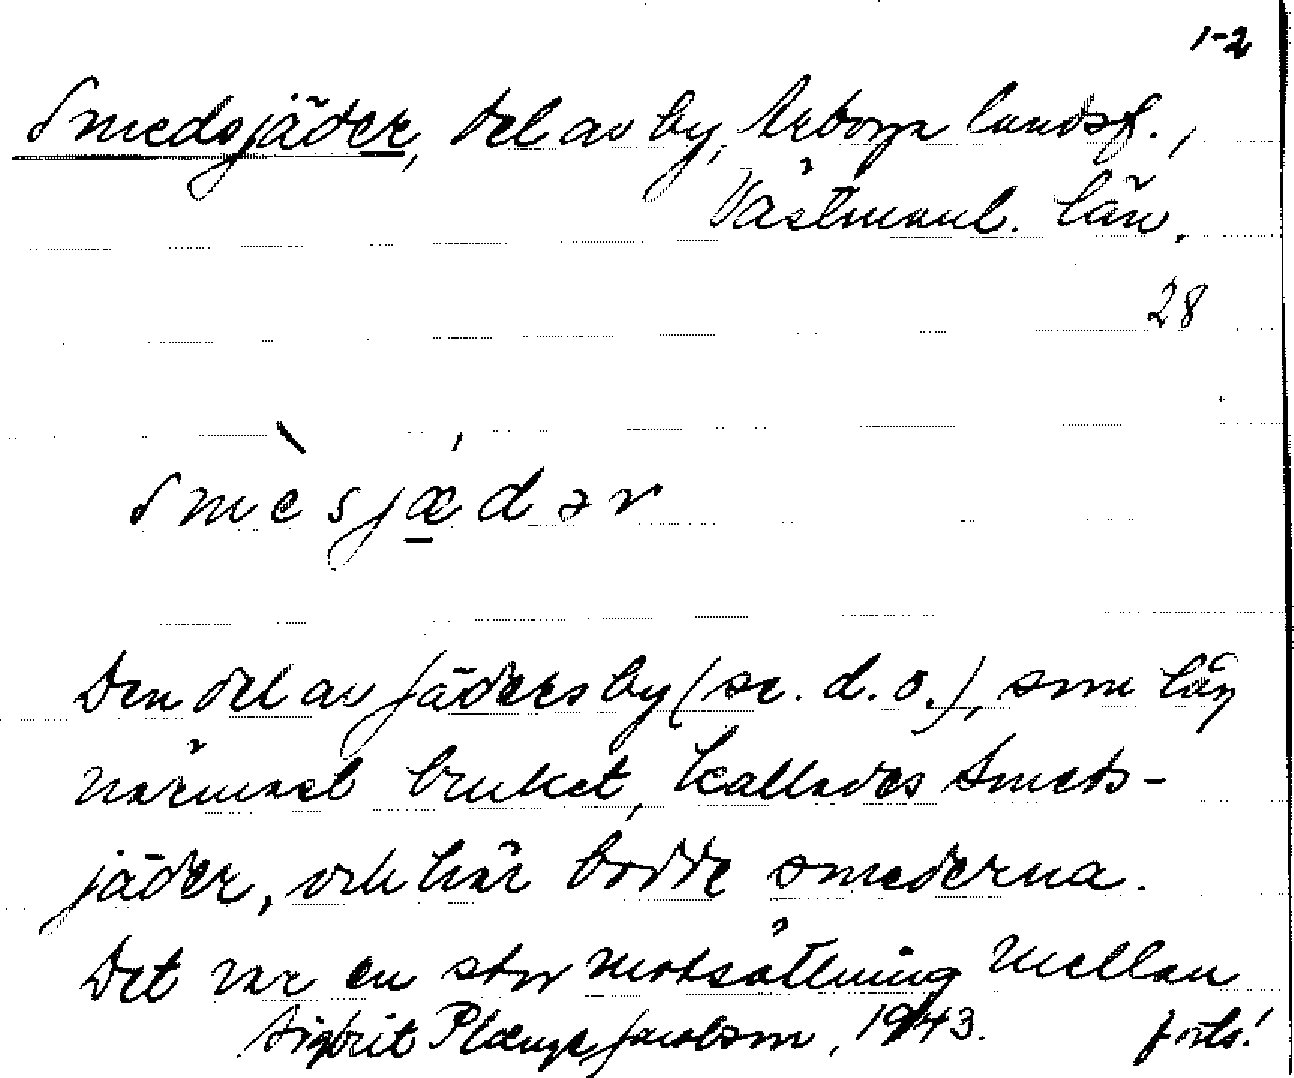 1-2
Smedsjäder, del av by, Arboga landsf.,
Västmanl. län.
28
Smèsjædər
Den del av Jäders by (se. d. o.), som låg
närmast bruket, kallades Smeds-
jäder, och här bodde smederna.
Det var en stor motsättning mellan
Sigbrit Plænge Jacobson, 1943. forts!